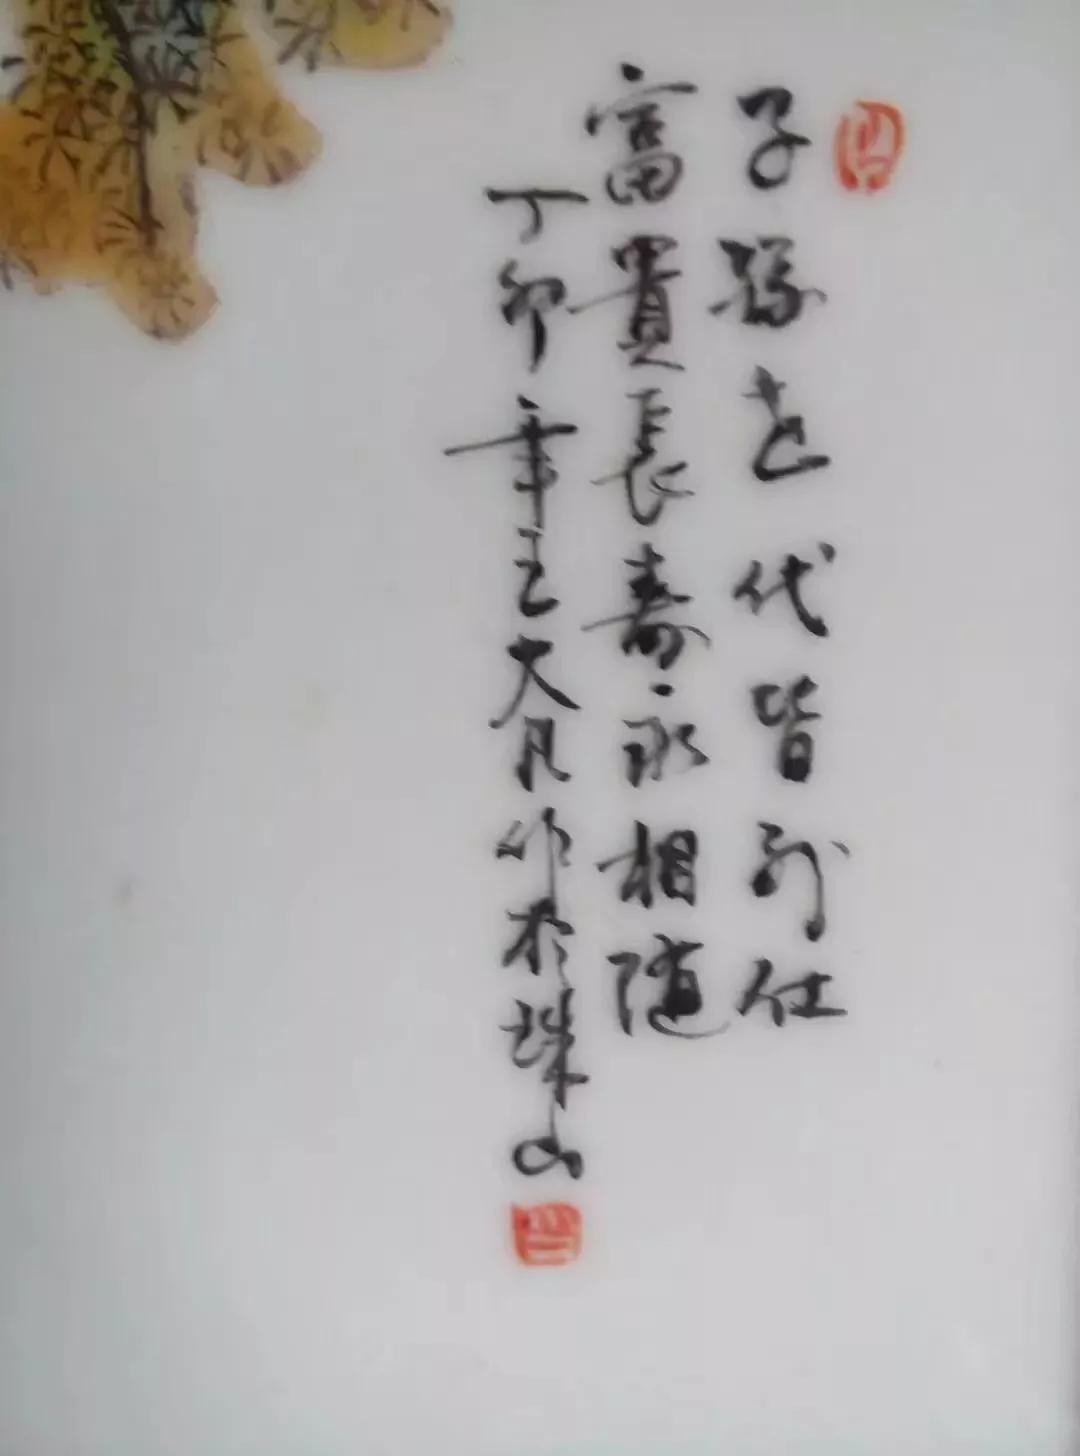 子孫世代皆列仕
富貴長壽永相隨
丁卯年王大凡作於珠山